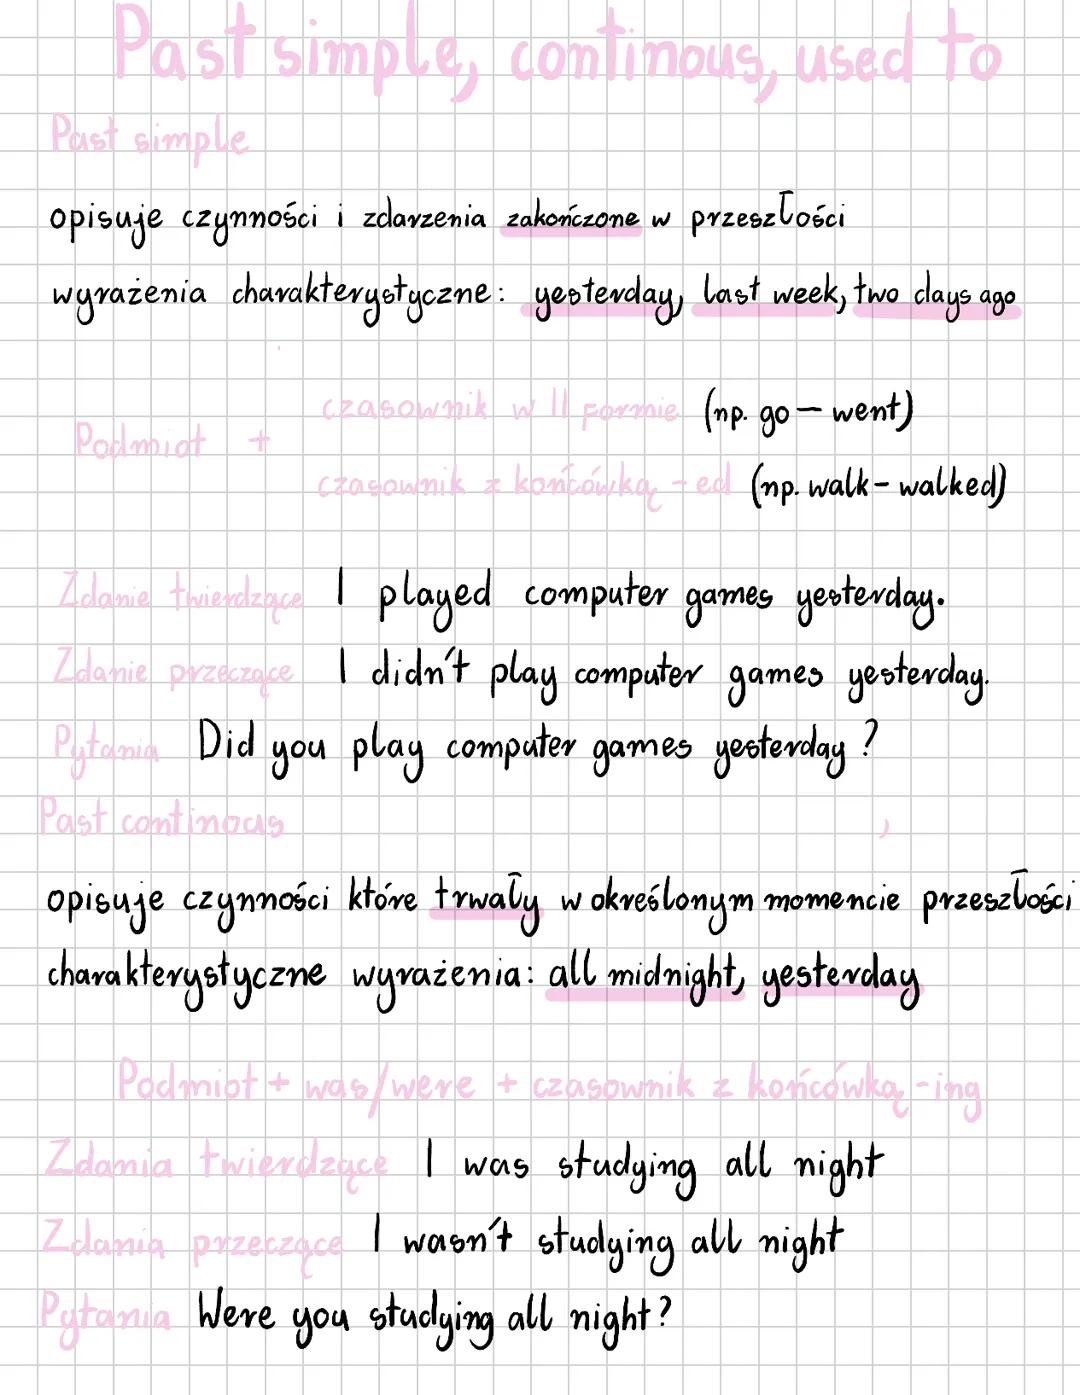 Past simple, continous, used to
Past simple
opisuje czynności i zdarzenia zakończone w przeszłości
wyrażenia charakterystyczne: yesterday, last week, two days ago
czasownik w II formie (np. go – went)
Podmiot +
czasownik z końcówką -ed (np. walk - walked)
Zdanie twierdzące I played computer games yesterday.
Zdanie przeczące I didn't play computer games yesterday.
Pytania Did you play computer games yesterday?
Past continous
opisuje czynności które trwały w określonym momencie przeszłości
charakterystyczne wyrażenia: all midnight, yesterday
Podmiot + was/were + czasownik z końcówką -ing
Zdania twierdzące I was studying all night
Zdania przeczące I wasn't studying all night
Pytania Were you studying all night?